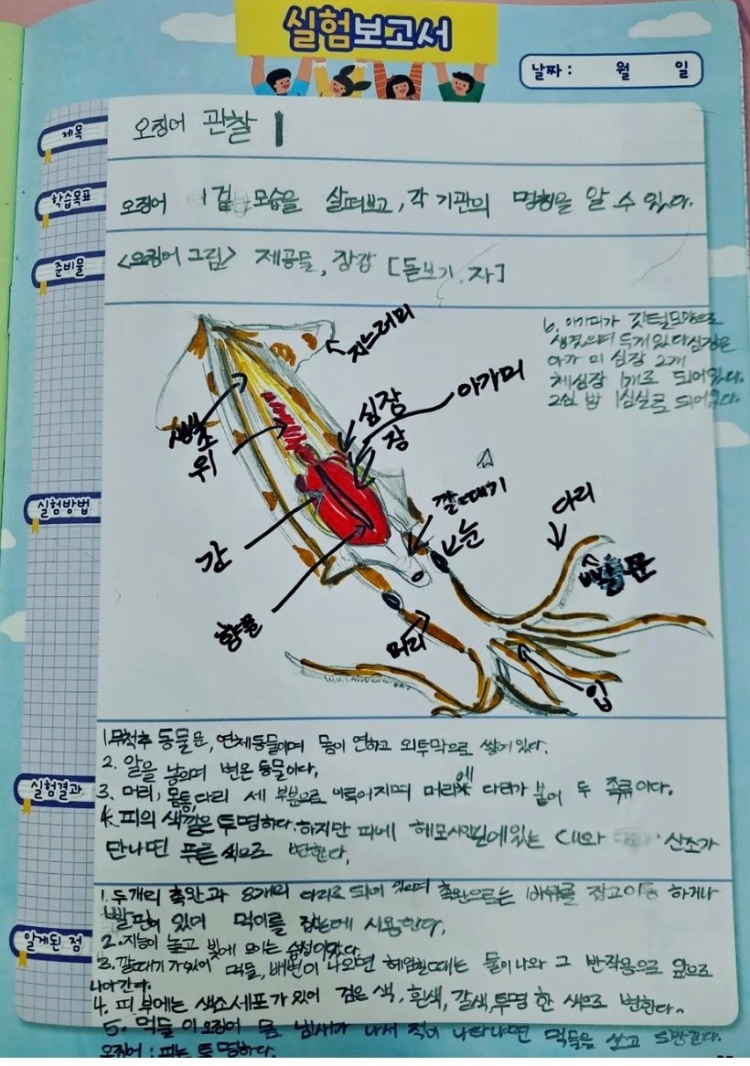 실험보고서
날짜 : 월 일
제목
오징어 관찰 1
학습목표
오징어 겉 모습을 살펴보고, 각 기관의 명칭을 알 수 있다.
준비물
<오징어 그림> 제공물, 장갑 [돋보기, 자]
실험방법
지느러미
6. 아가미가 깃털모양으로
생겼으며 두개 있다 심장은
아가미 심장 2개
체심장 1개로 되어있다.
2심방 1심실로 되어있다.
심장
장
아가미
위
깔때기
눈
다리
간
항문
머리
입
실험결과
1 무척추 동물문, 연체동물이며 몸이 연하고 외투막으로 쌓여 있다.
2. 알을 낳으며 변온 동물이다.
3. 머리, 몸통, 다리 세 부분으로 이루어지며 머리에 다리가 붙어 두 족류이다.
4. 피의 색깔은 투명하다. 하지만 피에 헤모시아닌에있는 산소가
만나면 푸른 색으로 변한다.
알게된 점
1. 두개의 촉완과 8개의 다리로 되어 있으며 촉완으로는 잡고이동 하거나
빨판이 있어 먹이를 잡는데 사용한다.
2. 지능이 높고 빛에 모이는 습성이있다.
3. 깔때기가있어 먹물, 배변이 나오면 헤엄칠때는 물이나와 그 반작용으로 앞으로
나아간다.
4. 피부에는 색소세포가 있어 검은 색, 흰색, 갈색, 투명 한 색으로 변한다.
5. 먹물 이 오징어 몸 냄새가 나서 적이 나타나면 먹물을 쏘고 도망간다.
오징어 : 피는 투명하다.